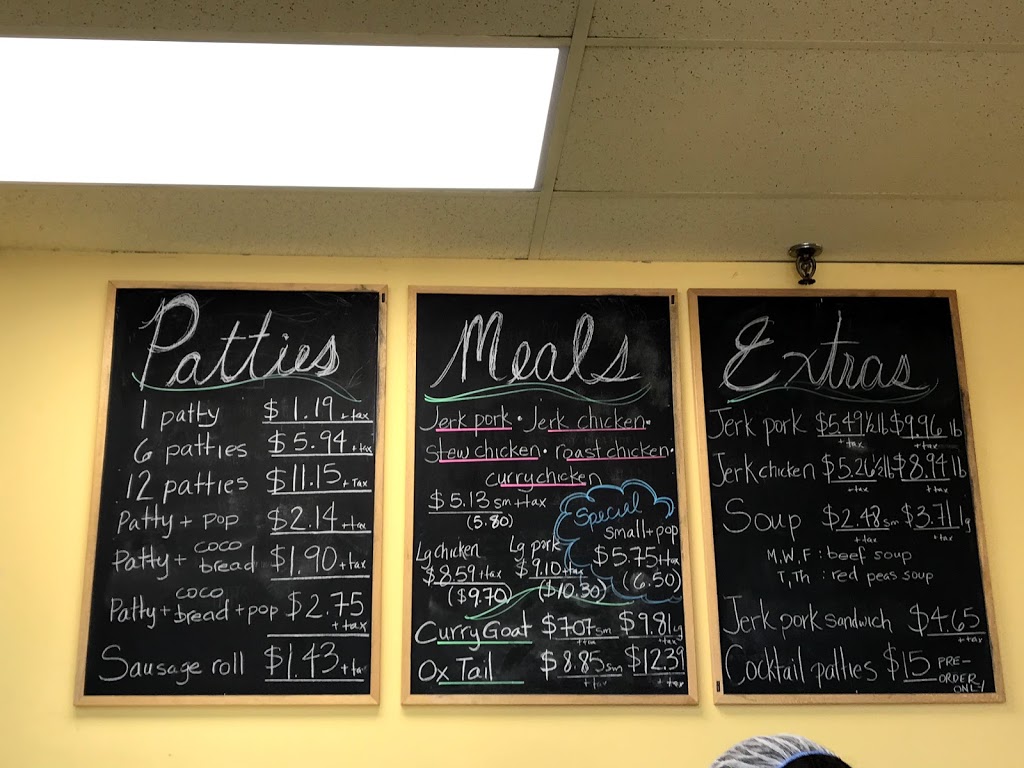 Patties
1 patty $1.19 + tax
6 patties $5.94 + tax
12 patties $11.15 + Tax
Patty + POP $2.14 + tax
Patty + coco bread $1.90 + tax
Patty + coco bread + pop $2.75 + tax
Sausage roll $1.43 + ta
Meals
Jerk pork • Jerk chicken •
stew chicken • roast chicken •
curry chicken
$5.13 sm + tax
(5.80)
Special
small + pop
$5.75 + tax
(6.50)
Lg chicken
$8.59 + tax
($9.70)
Lg pork
$9.10 + tax
($10.30)
Curry Goat $7.07 sm $9.81 lg
+ tax + tax
Ox Tail $8.85 sm $12.39
+ tax + tax
Extras
Jerk pork $5.49 ½ lb $9.96 lb
+ tax + tax
Jerk chicken $5.26 ½ lb $8.94 lb
+ tax + tax
Soup $2.48 sm $3.71 lg
+ tax + tax
M, W, F : beef soup
T, Th : red peas soup
Jerk pork sandwich $4.65
+ tax
Cocktail patties $15 PRE-ORDER ONLY